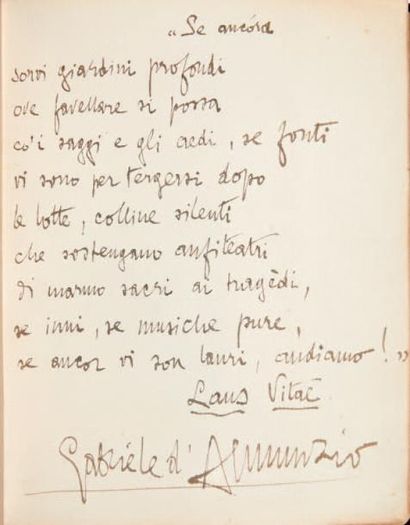 "Se ancóra
sonvi giardini profondi
ove favellare si possa
co'i saggi e gli aedi, se fonti
vi sono per tergersi dopo
le lotte, colline silenti
che sostengano anfiteatri
di marmo sacri ai tragèdi,
se inni, se musiche pure,
se ancor vi son lauri, andiamo!"
Laus Vitae
Gabriele d'Annunzio